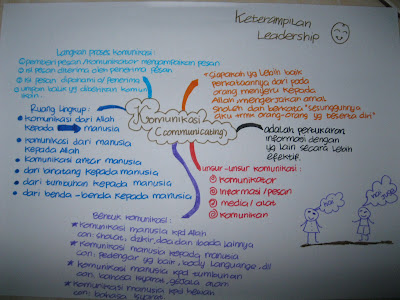 Keterampilan
Leadership
Langkah proses komunikasi :
pemberi pesan /komunikator menyampaikan pesan
isi pesan diterima oleh penerima pesan
isi pesan dipahami o/ penerima
umpan balik yg diberikan komun
ikan.
"siapakah yg lebih baik
perkataannya dari pada
orang menyeru kepada
Allah mengerjakan amal
sholeh dan berkata "sesungguhnya
aku
orang-orang yg berserah diri"
Komunikasi
(communicating)
adalah pertukaran
informasi dengan
yg lain secara lebih
efektif.
Ruang lingkup :
komunikasi dari Allah
kepada manusia
komunikasi dari manusia
kepada Allah
komunikasi antar manusia
dari binatang kepada manusia
dari tumbuhan kepada manusia
dari benda-benda kepada manusia
unsur-unsur komunikasi :
1 komunikator
2 informasi /pesan
3 media / alat
4 komunikan
Bentuk komunikasi :
* Komunikasi manusia kpd Allah
con: sholat, dzikir, doa dan ibadah lainnya
* Komunikasi manusia kepada manusia
con: pedengar yg baik, body languange, dll
* Komunikasi manusia kpd tumbuhan
con: bahasa isyarat, gejala alam
* Komunikasi manusia kpd hewan
con: bahasa isyarat